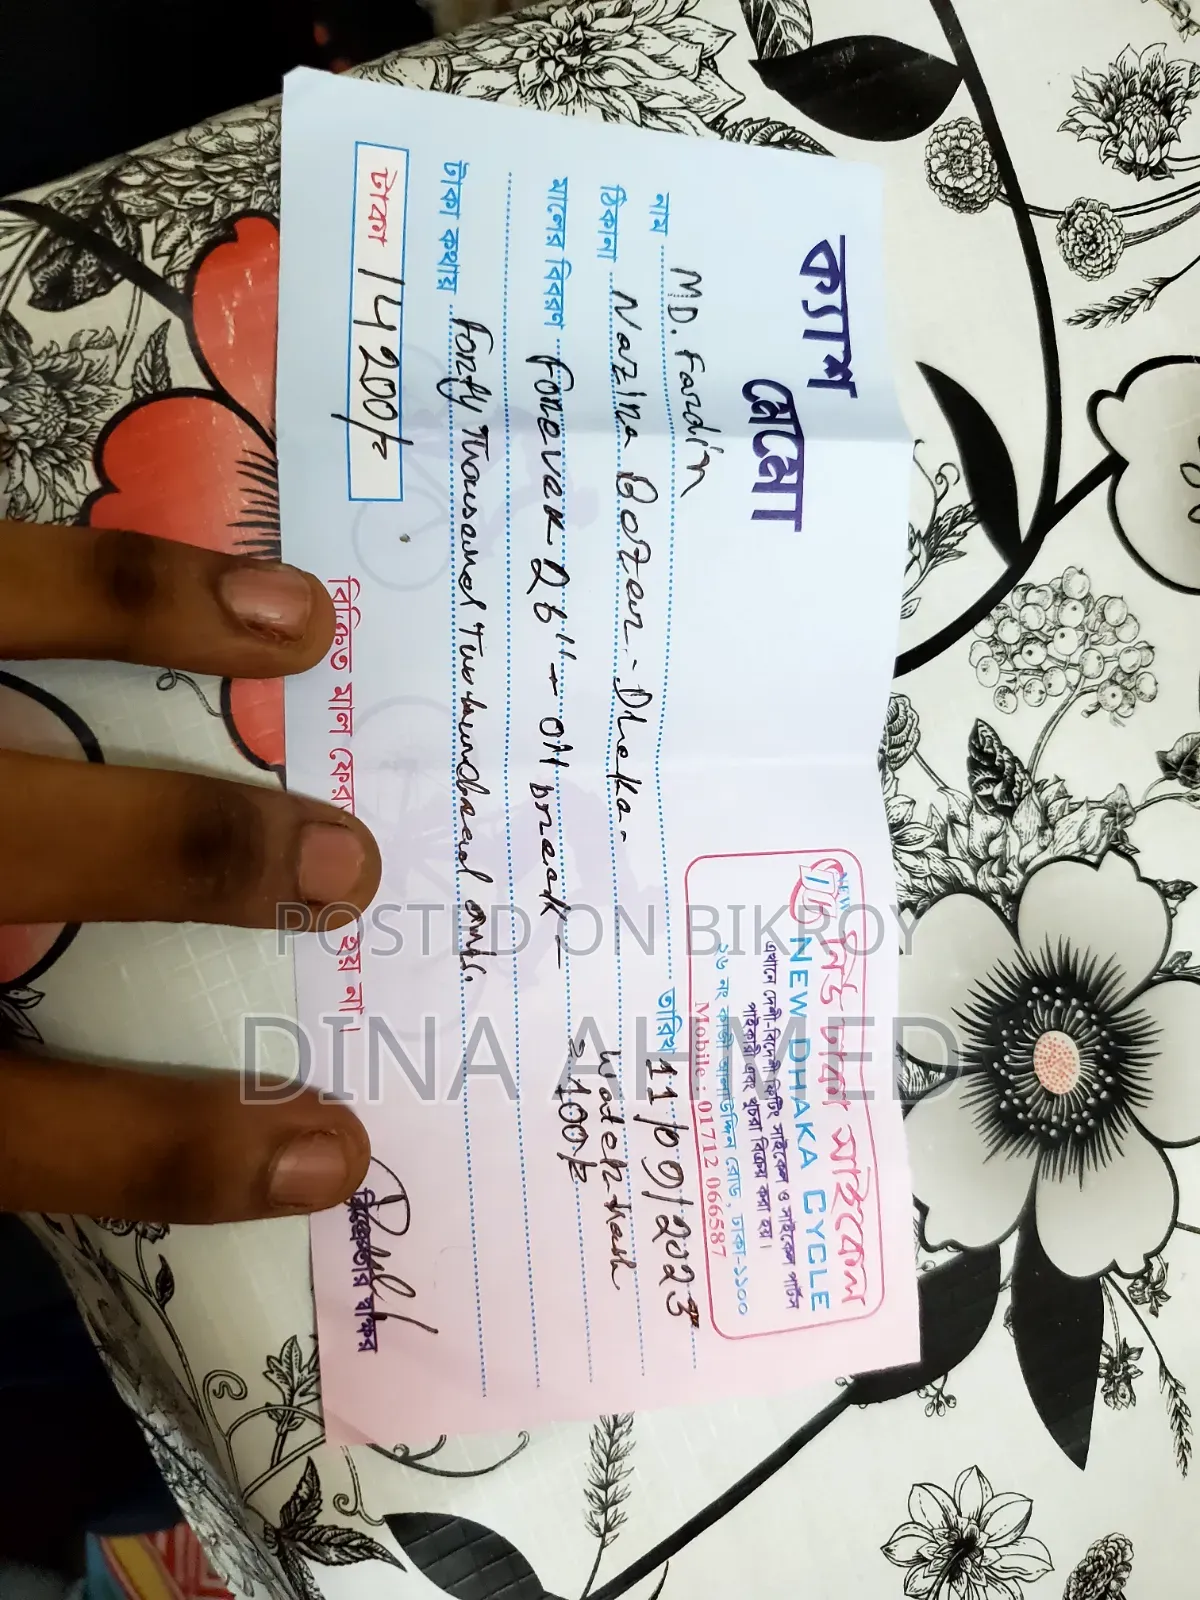 ক্যাশ মেমো
NEW
নিউ ঢাকা সাইকেল
NEW DHAKA CYCLE
এখানে দেশী-বিদেশী ফিটিং সাইকেল ও সাইকেল পার্টস
পাইকারী এবং খুচরা বিক্রয় করা হয়।
১৬ নং কাজী আলাউদ্দিন রোড, ঢাকা-১১০০
Mobile : 01712 066587
নাম MD. Fardin তারিখ 11/09/2023
ঠিকানা Nazira Bazar. - Dhaka. water Mash
মালের বিবরণ Forever 26" → oil break – 100/=
টাকা কথায় Forty Thousand Two hundread only.
টাকা 14200/=
বিক্রিত মাল ফেরৎ হয় না।
বিক্রেতার স্বাক্ষর
POSTED ON BIKROY
DINA AHMED